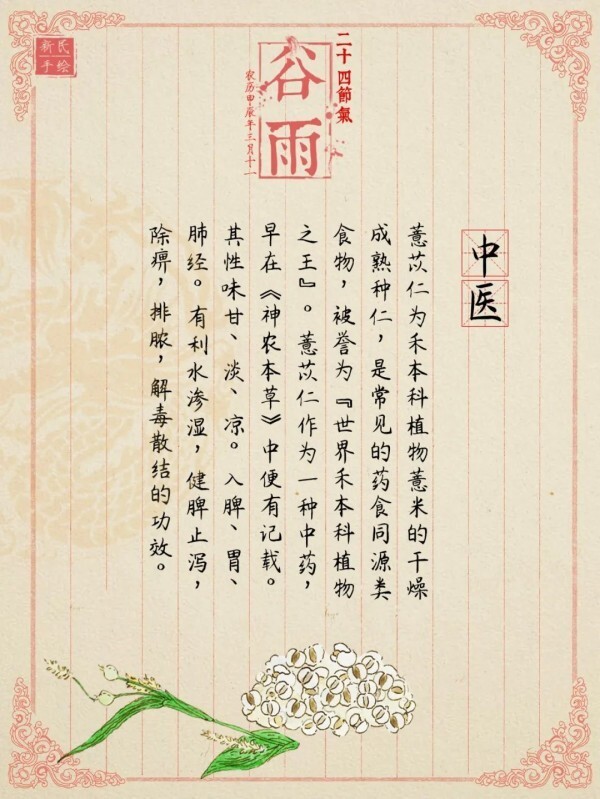 新氏
手绘
二十四節氣
谷雨
农历甲辰年三月十二
中医
薏苡仁为禾本科植物薏米的干燥
成熟种仁，是常见的药食同源类
食物，被誉为『世界禾本科植物
之王』。薏苡仁作为一种中药，
早在《神农本草》中便有记载。
其性味甘、淡、凉。入脾、胃、
肺经。有利水渗湿，健脾止泻，
除痹，排脓，解毒散结的功效。